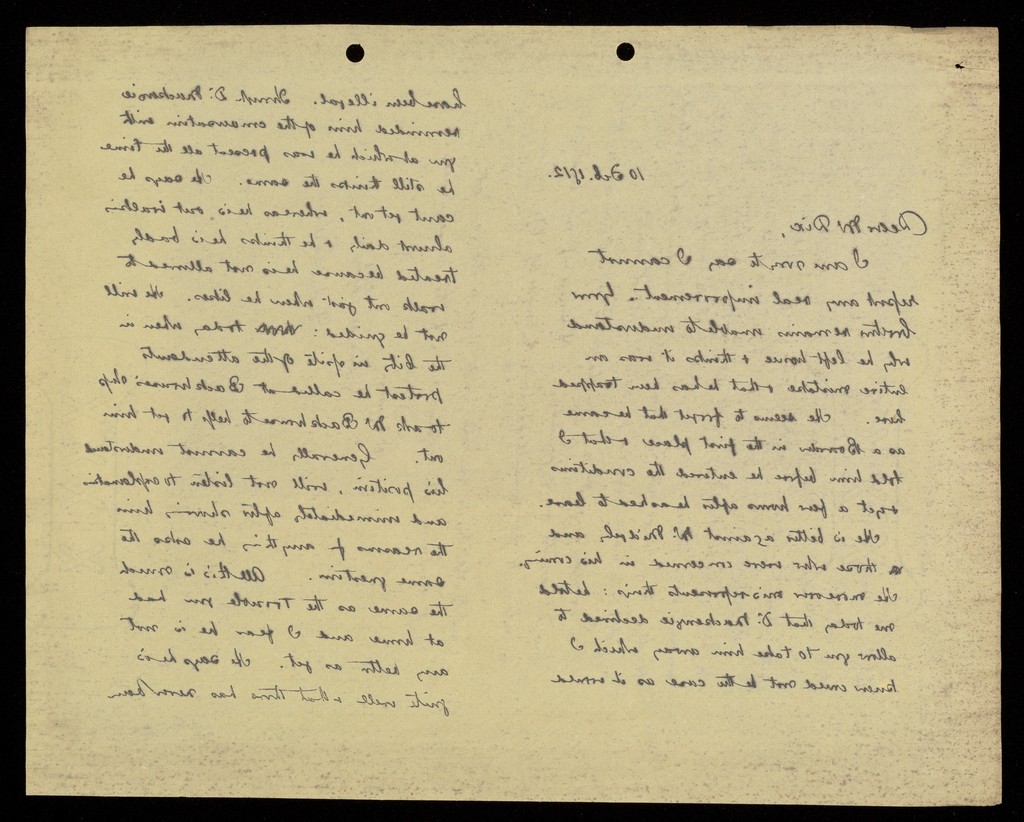 10 Feb. 1912.
Dear Mr Dix,
I am sorry to say I cannot
report any real improvement. Your
brother remains unable to understand
why he left home & thinks it was an
entire mistake & that he has been trapped
here. He seems to forget that he came
as a Boarder in the first place & that I
told him before he entered the conditions
& yet a few hours after he asked to leave.
He is bitter against Mr and
those who were concerned in his coming.
He moreover misrepresents things: he told
me today that Dr. Mackenzie declined to
allow you to take him away, which I
knew could not be the case as it would
have been illegal. Though Dr. Mackenzie
reminded him of the conversation with
you at which he was present all the time
he still thinks the same. He says he
cant get out, whereas he is out walking
almost daily, & he thinks he is badly
treated because he is not allowed to
walk out just when he likes. He will
not be guided: today, when in
the city, in spite of the attendants
protest he called at Backhouse's shop
to ask Mr Backhouse to help to get him
out. Generally he cannot understand
his position, will not listen to explanations
and immediately after showing him
the reasons for anything he asks the
same question. All this is much
the same as the trouble you had
at home and I fear he is not
any better as yet. He says he is
quite well & that there has never been